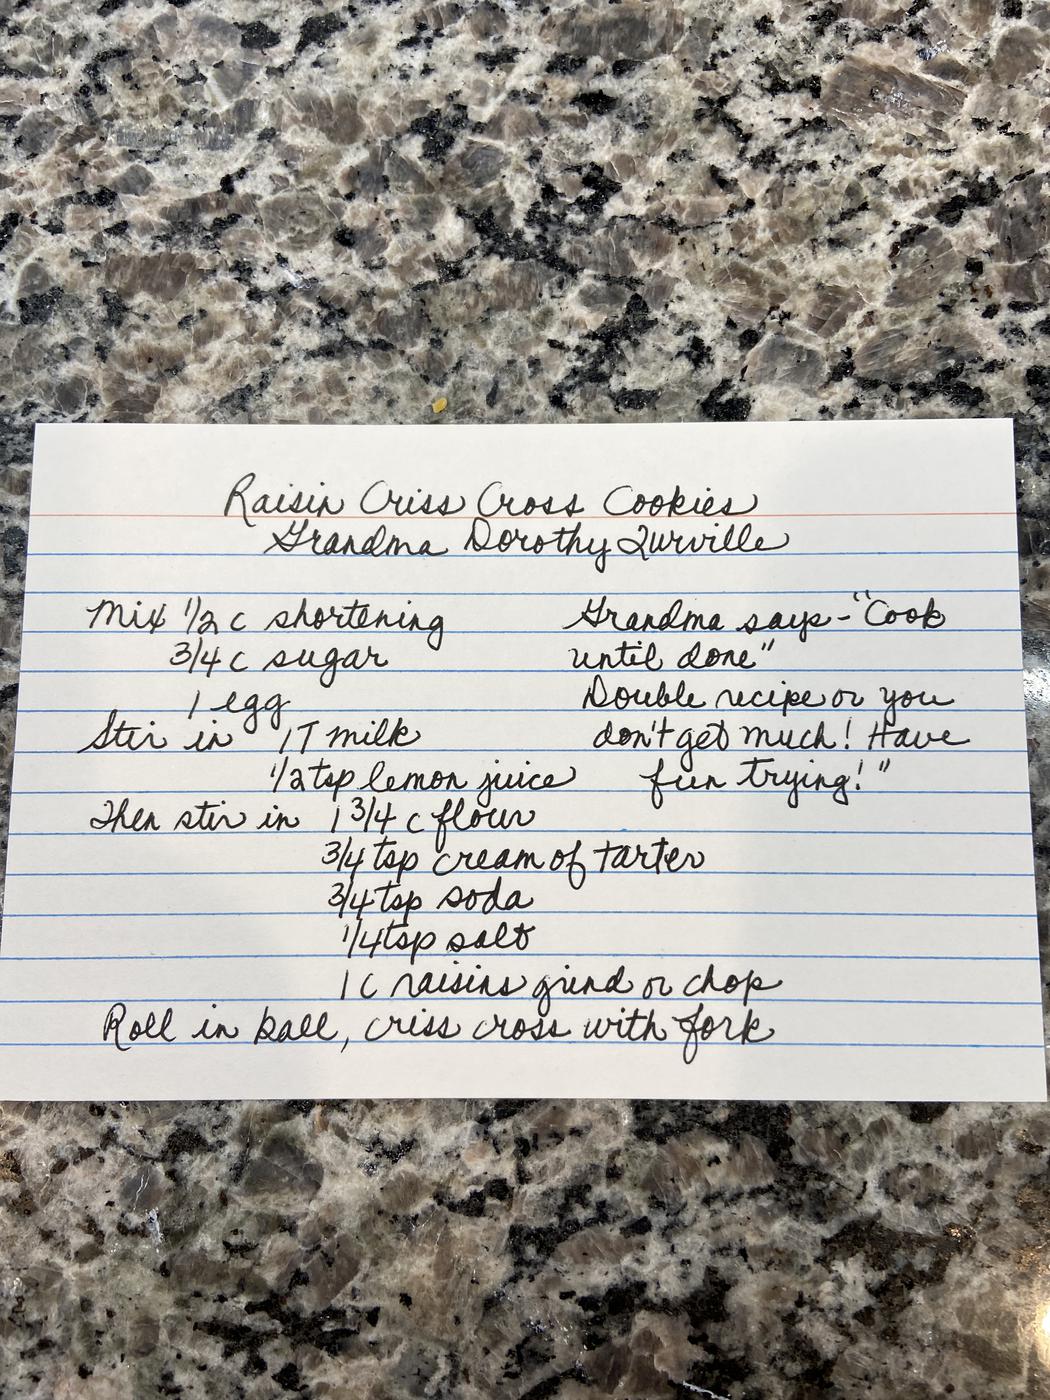 Raisin Criss Cross Cookies
Grandma Dorothy Turville
Mix 1/2 c shortening
3/4 c sugar
1 egg
Stir in 1T milk
1/2 tsp lemon juice
Then stir in 1 3/4 c flour
3/4 tsp cream of tarter
3/4 tsp soda
1/4 tsp salt
1 c raisins grind or chop
Roll in ball, criss cross with fork
Grandma says - "Cook
until done"
Double recipe or you
don't get much! Have
fun trying!"